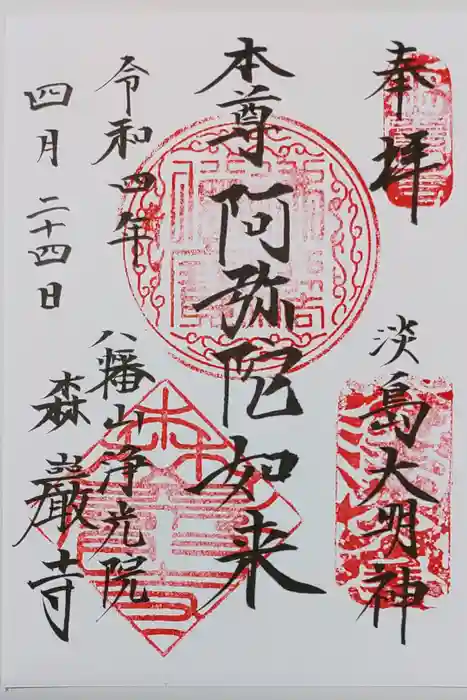 奉拝
淡島大明神
本尊阿弥陀如来
令和四年
四月二十四日
八幡山浄光院
森巖寺